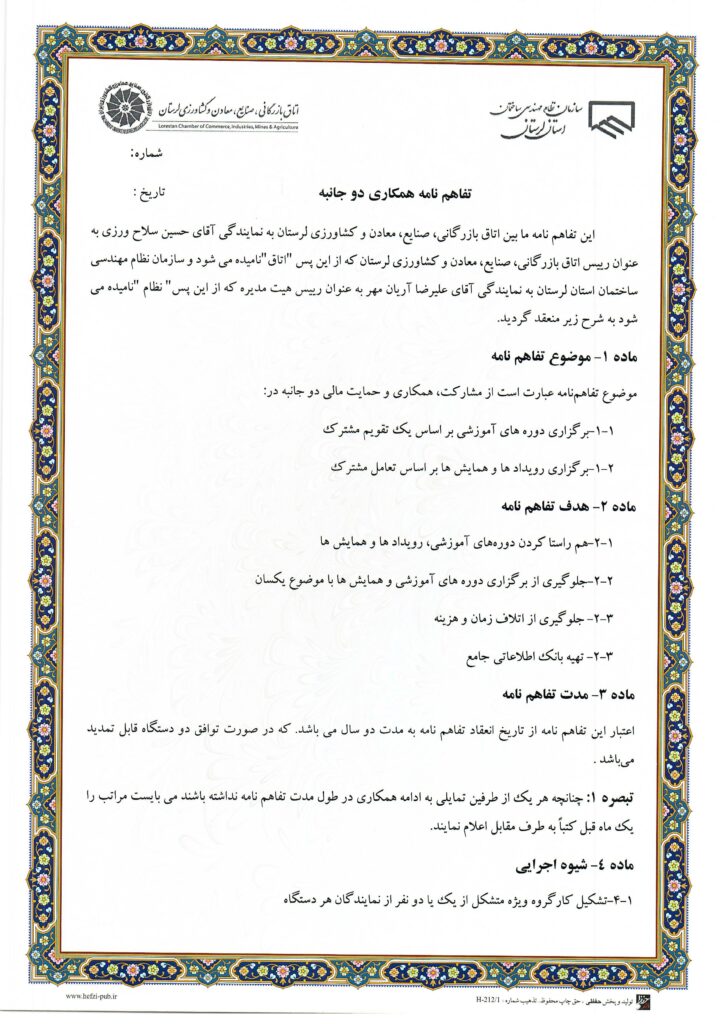 سازمان نظام مهندسی ساختمان
استان لرستان
اتاق بازرگانی، صنایع، معادن و کشاورزی لرستان
Lorestan Chamber of Commerce, Industries, Mines & Agriculture
شماره:
تاریخ :
تفاهم نامه همکاری دو جانبه
این تفاهم نامه ما بین اتاق بازرگانی، صنایع، معادن و کشاورزی لرستان به نمایندگی آقای حسین سلاح ورزی به
عنوان رییس اتاق بازرگانی، صنایع، معادن و کشاورزی لرستان که از این پس "اتاق"نامیده می شود و سازمان نظام مهندسی
ساختمان استان لرستان به نمایندگی آقای علیرضا آریان مهر به عنوان رییس هیت مدیره که از این پس" نظام "نامیده می
شود به شرح زیر منعقد گردید.
ماده ۱- موضوع تفاهم نامه
موضوع تفاهم‌نامه عبارت است از مشارکت، همکاری و حمایت مالی دو جانبه در:
۱-۱-برگزاری دوره های آموزشی بر اساس یک تقویم مشترک
۱-۲-برگزاری رویداد ها و همایش ها بر اساس تعامل مشترک
ماده ۲- هدف تفاهم نامه
۲-۱-هم راستا کردن دوره‌های آموزشی، رویداد ها و همایش ها
۲-۲-جلوگیری از برگزاری دوره های آموزشی و همایش ها با موضوع یکسان
۲-۳- جلوگیری از اتلاف زمان و هزینه
۲-۳- تهیه بانک اطلاعاتی جامع
ماده ۳- مدت تفاهم نامه
اعتبار این تفاهم نامه از تاریخ انعقاد تفاهم نامه به مدت دو سال می باشد. که در صورت توافق دو دستگاه قابل تمدید
می‌باشد .
تبصره ۱: چنانچه هر یک از طرفین تمایلی به ادامه همکاری در طول مدت تفاهم نامه نداشته باشند می بایست مراتب را
یک ماه قبل کتباً به طرف مقابل اعلام نمایند.
ماده ۴- شیوه اجرایی
۴-۱-تشکیل کارگروه ویژه متشکل از یک یا دو نفر از نمایندگان هر دستگاه
تولید و پخش حفظی ، حق چاپ محفوظ. تذهیب شماره : H-212/1
www.hefzi-pub.ir